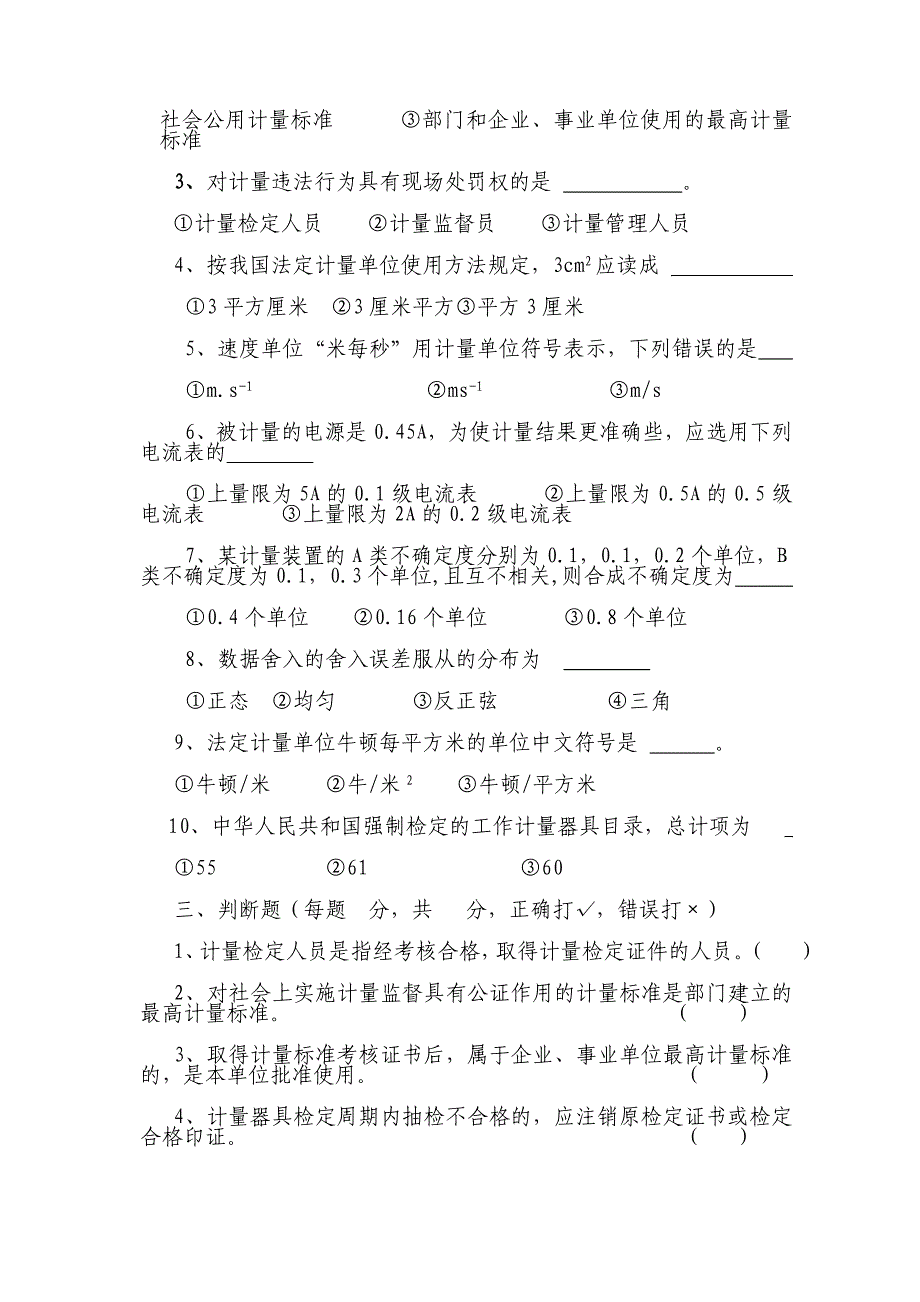 社会公用计量标准 ③部门和企业、事业单位使用的最高计量
标准
3、对计量违法行为具有现场处罚权的是 ___________。
①计量检定人员 ②计量监督员 ③计量管理人员
4、按我国法定计量单位使用方法规定，3cm²应读成 ___________
①3平方厘米 ②3厘米平方③平方3厘米
5、速度单位“米每秒”用计量单位符号表示，下列错误的是___
①m.s⁻¹ ②ms⁻¹ ③m/s
6、被计量的电源是0.45A，为使计量结果更准确些，应选用下列
电流表的________
①上量限为5A的0.1级电流表 ②上量限为0.5A的0.5级
电流表 ③上量限为2A的0.2级电流表
7、某计量装置的A类不确定度分别为0.1，0.1，0.2个单位，B
类不确定度为0.1，0.3个单位,且互不相关,则合成不确定度为_____
①0.4个单位 ②0.16个单位 ③0.8个单位
8、数据舍入的舍入误差服从的分布为 ________
①正态 ②均匀 ③反正弦 ④三角
9、法定计量单位牛顿每平方米的单位中文符号是 ______。
①牛顿/米 ②牛/米² ③牛顿/平方米
10、中华人民共和国强制检定的工作计量器具目录，总计项为 _
①55 ②61 ③60
三、判断题（每题 分，共 分，正确打√，错误打×）
1、计量检定人员是指经考核合格,取得计量检定证件的人员。( )
2、对社会上实施计量监督具有公证作用的计量标准是部门建立的
最高计量标准。 ( )
3、取得计量标准考核证书后，属于企业、事业单位最高计量标准
的，是本单位批准使用。 ( )
4、计量器具检定周期内抽检不合格的，应注销原检定证书或检定
合格印证。 ( )